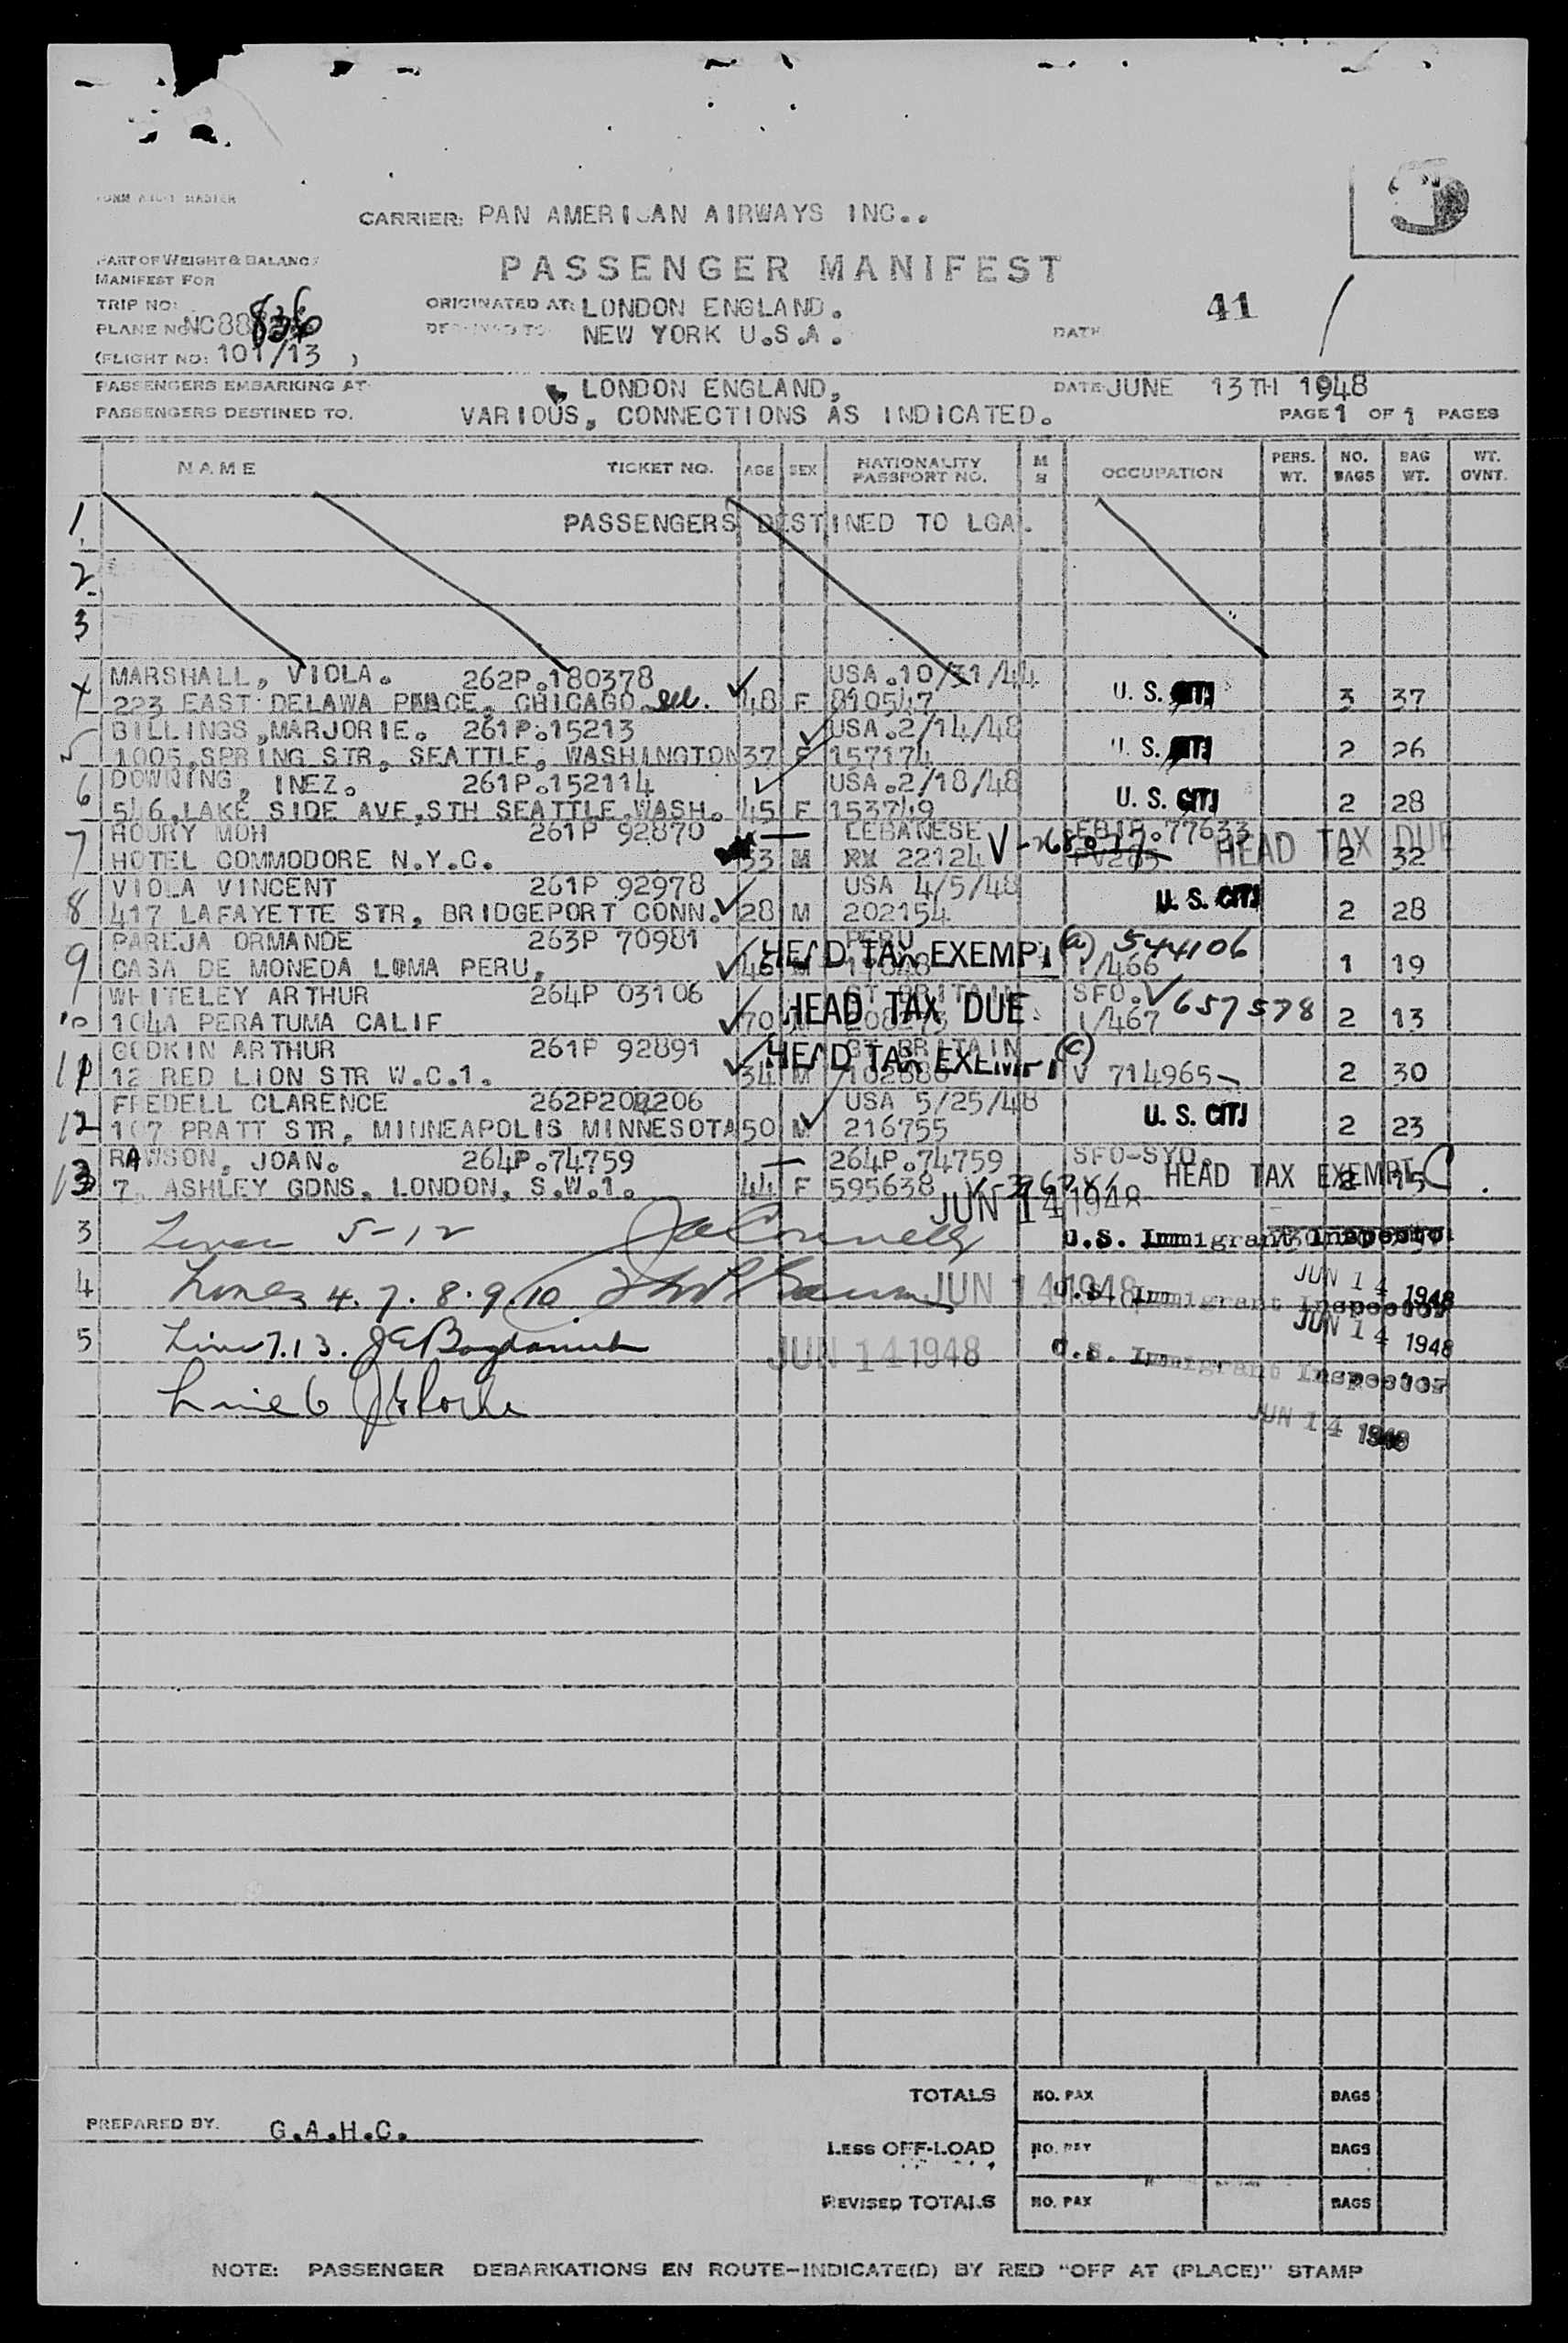 CARRIER: PAN AMERICAN AIRWAYS INC..
PART OF WEIGHT & BALANCE
MANIFEST FOR
PASSENGER MANIFEST
TRIP NO:
ORIGINATED AT: LONDON ENGLAND.
41
PLANE NO: NC88836
NEW YORK U.S.A.
DATE
(FLIGHT NO: 101/13 )
PASSENGERS EMBARKING AT LONDON ENGLAND,
DATE: JUNE 13TH 1948
PASSENGERS DESTINED TO. VARIOUS, CONNECTIONS AS INDICATED.
PAGE 1 OF 1 PAGES
NAME TICKET NO. AGE SEX NATIONALITY PASSPORT NO. M S OCCUPATION PERS. WT. NO. BAGS BAG WT. WT. OVNT.
1. PASSENGERS DESTINED TO LGA.
2.
3
4 MARSHALL, VIOLA. 262P.180378 USA.10/31/44
223 EAST DELAWA PLACE, CHICAGO 48 F 810547 U. S. CITI 3 37
5 BILLINGS,MARJORIE. 261P.15213 USA.2/14/48
1005,SPRING STR, SEATTLE, WASHINGTON 37 F 157174 U. S. CITI 2 26
6 DOWNING, INEZ. 261P.152114 USA.2/18/48
546,LAKE SIDE AVE,STH SEATTLE,WASH. 45 F 153749 U. S. CITI 2 28
7 HOURY MOH 261P 92870 LEBANESE
HOTEL COMMODORE N.Y.C. 33 M 22124 HEAD TAX DUE 2 32
8 VIOLA VINCENT 261P 92978 USA 4/5/48
417 LAFAYETTE STR, BRIDGEPORT CONN. 28 M 202154 U. S. CITI 2 28
9 PAREJA ORMANDE 263P 70981 PERU HEAD TAX EXEMPT (a) 544106
CASA DE MONEDA LOMA PERU, 46 M 1/466 1 19
10 WHITELEY ARTHUR 264P 03106 GT BRITAIN HEAD TAX DUE SFO. V 657578
104A PERATUMA CALIF 70 M 1/467 2 13
11 GODKIN ARTHUR 261P 92891 GT BRITAIN HEAD TAX EXEMPT (c)
12 RED LION STR W.C.1. 34 M V 714965 2 30
12 FREDELL CLARENCE 262P202206 USA 5/25/48
107 PRATT STR, MINNEAPOLIS MINNESOTA 50 M 216755 U. S. CITI 2 23
13 RAWSON, JOAN. 264P.74759 264P.74759 SFO-SYD.
7, ASHLEY GDNS, LONDON, S.W.1. 44 F 595638 HEAD TAX EXEMPT C
JUN 14 1948
3 5-12 U.S. Immigrant Inspector
JUN 14 1948
4 Lines 4. 7. 8. 9. 10 JUN 14 1948 U.S. Immigrant Inspector
JUN 14 1948
5 Line 7.13. JUN 14 1948 U.S. Immigrant Inspector
Line 6
JUN 14 1948
TOTALS NO. PAX BAGS
PREPARED BY. G.A.H.C.
LESS OFF-LOAD BAGS
REVISED TOTALS NO. PAX BAGS
NOTE: PASSENGER DEBARKATIONS EN ROUTE-INDICATE(D) BY RED "OFF AT (PLACE)" STAMP